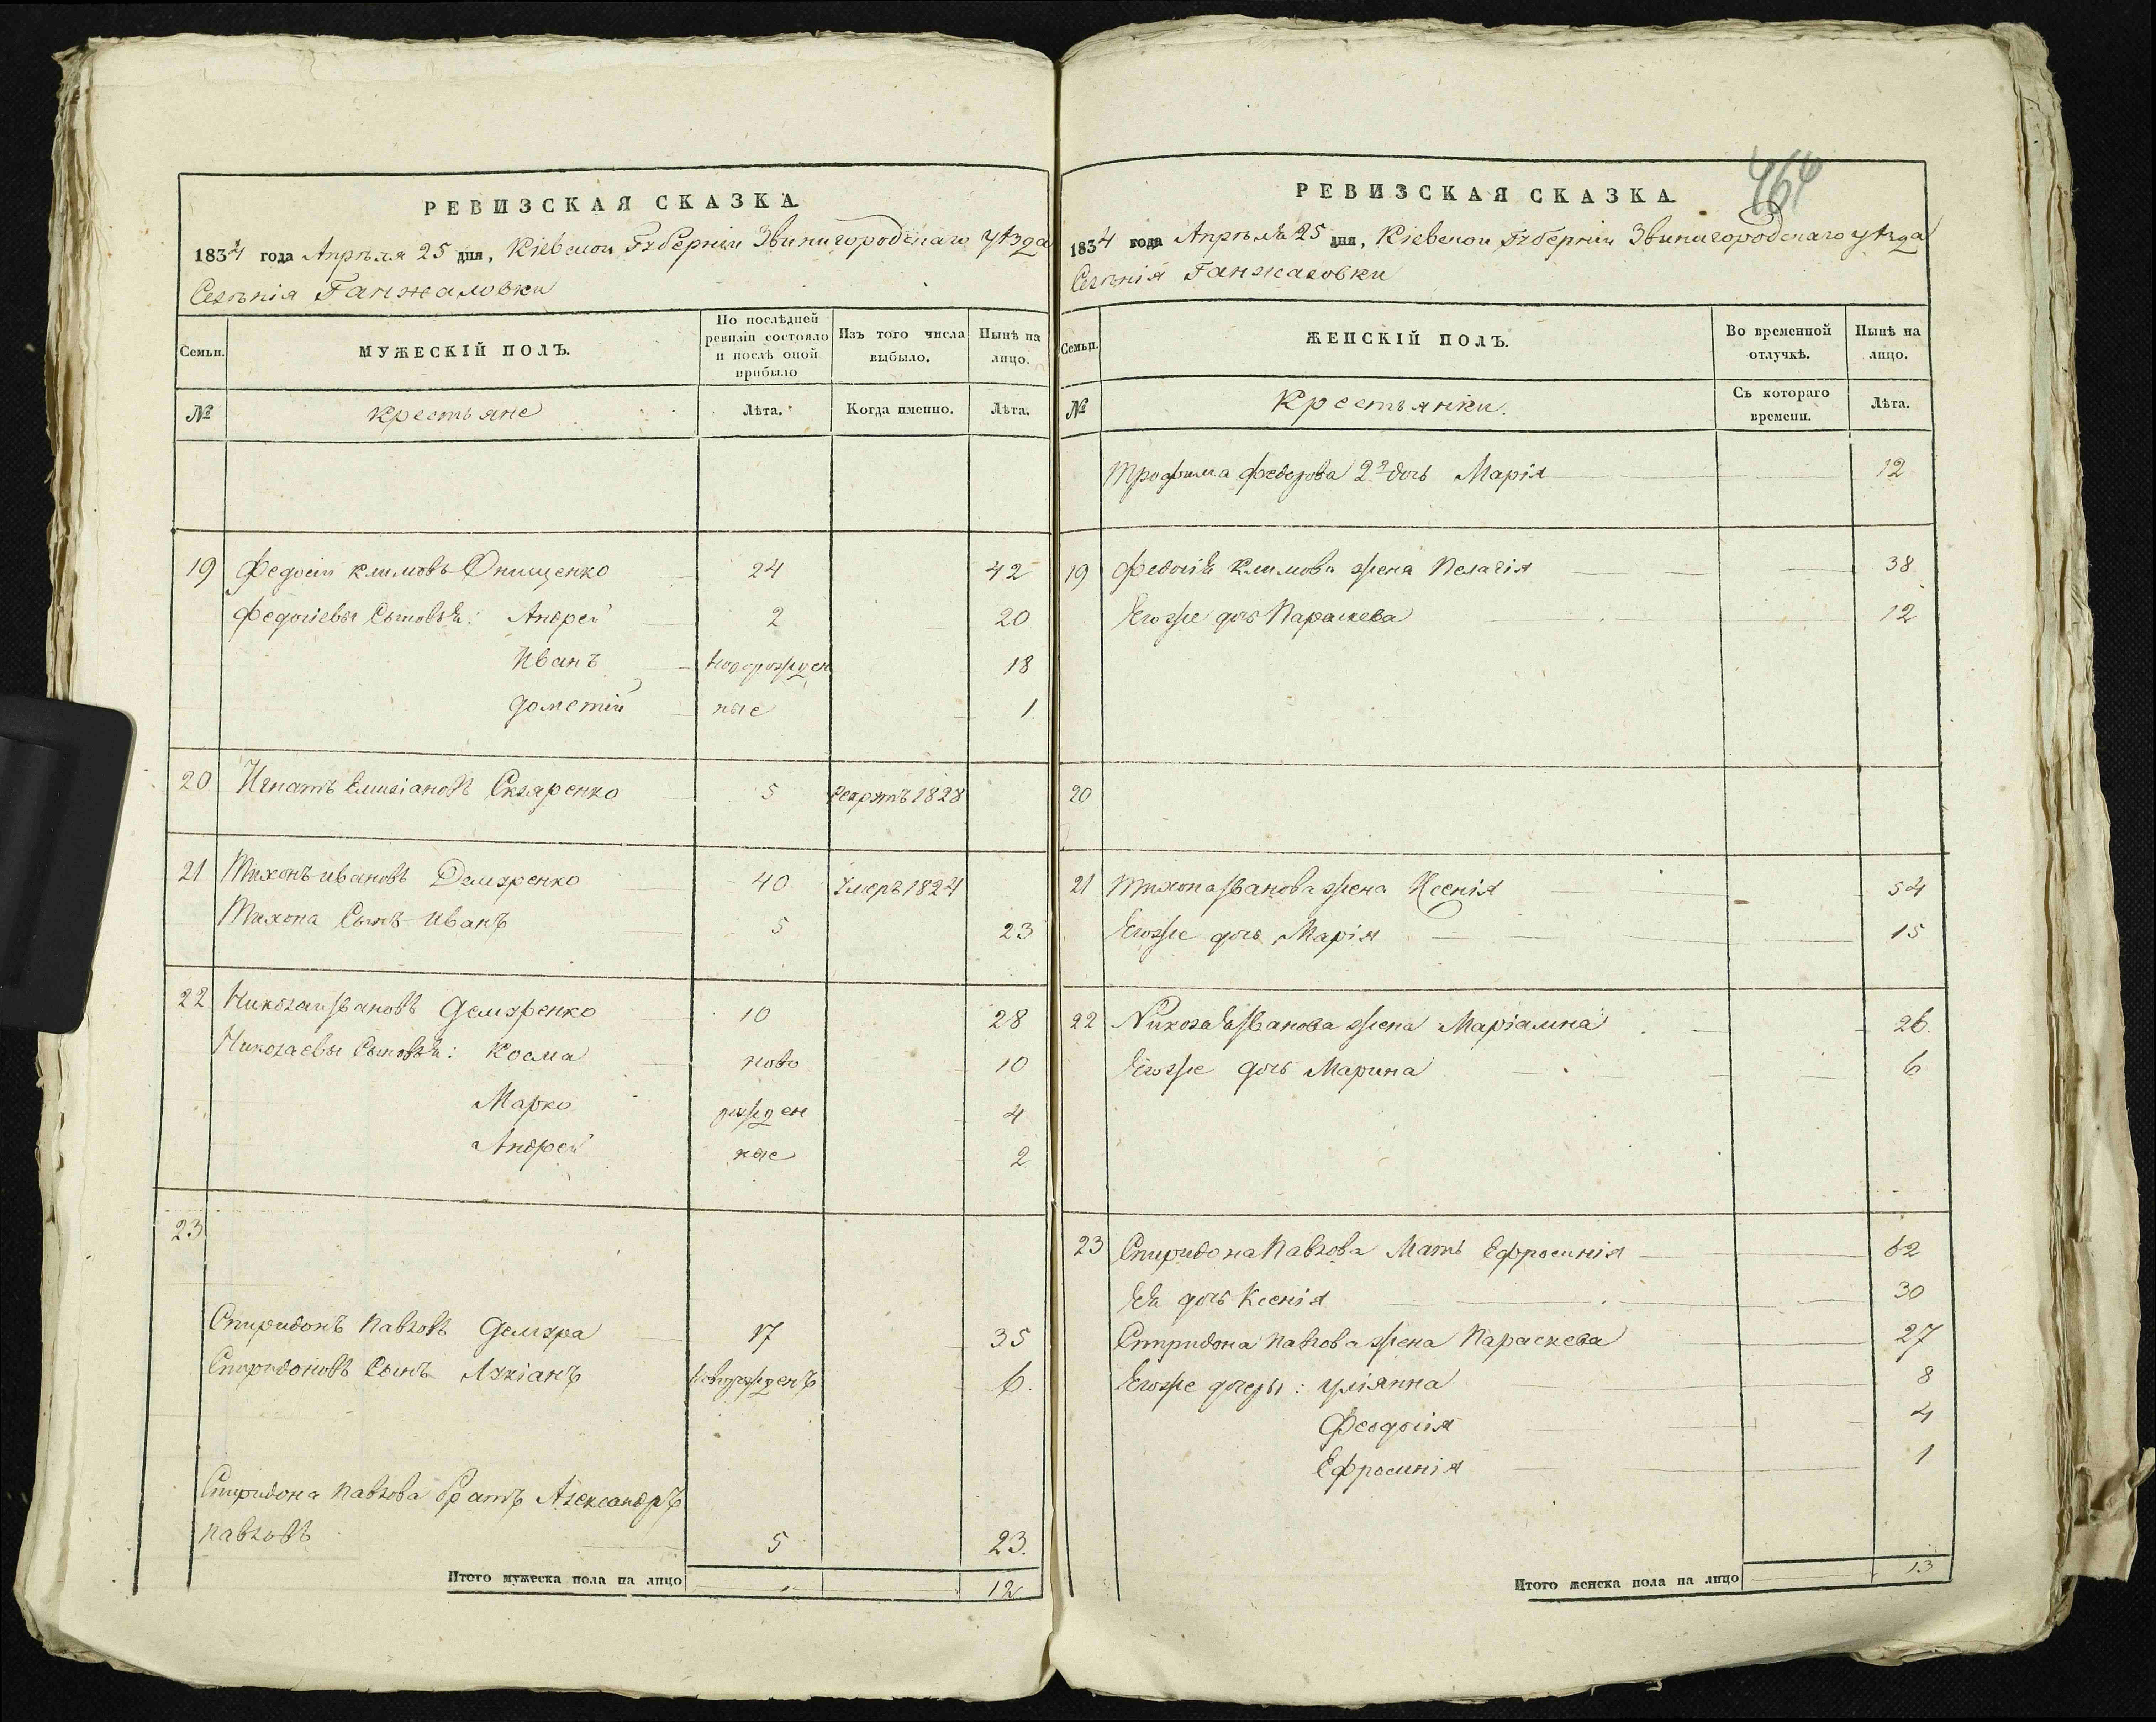 РЕВИЗСКАЯ СКАЗКА
1834 года Апрѣля 25 дня, Кіевской Губерніи Звинигородскаго уѣзда
Селѣнія Ганжаловки
Семьи.
МУЖЕСКІЙ ПОЛЪ.
По послѣдней ревизіи состояло и послѣ оной прибыло
Изъ того числа выбыло.
Нынѣ на лицо.
№
крестьяне
Лѣта.
Когда именно.
Лѣта.
19 Федосій климовъ Онищенко 24 42
Федосіевы Сыновья: Андрей 2 20
Иванъ новорожден 18
дометій ные 1
20 Игнатъ Емиліановъ Скляренко 5 рекрутъ 1828
21 Тихонъ ивановъ Демуренко 40 умеръ 1824
Тихона Сынъ иванъ 5 23
22 Николай ивановъ Демуренко 10 28
Николаевы Сыновья: Косма ново 10
Марко рожден 4
Андрей ные 2
23
Спиридонъ павловъ Демура 17 35
Спиридоновъ Сынъ Лукіанъ новорожденъ 6.
Спиридона павлова братъ Александръ
павловъ 5 23.
Итого мужеска пола на лицо 12
464
РЕВИЗСКАЯ СКАЗКА
1834 года Апрѣля 25 дня, Кіевской Губерніи Звинигородскаго уѣзда
Селѣнія Ганжаловки
Семьи.
ЖЕНСКІЙ ПОЛЪ.
Во временной отлучкѣ.
Нынѣ на лицо.
№
Крестьянки.
Съ котораго времени.
Лѣта.
Трофима федорова 2я дочь Марія 12
19 Федосія Климова жена Пелагія 38
Егоже дочь Параскева 12
20
21 Тихона Иванова жена Ксенія 54
Егоже дочь Марія 15
22 Николая Иванова жена Маріамна 26.
Егоже дочь Марина 6
23 Спиридона Павлова Мать Ефросинія 62
Ея дочь Ксенія 30
Спиридона Павлова жена Параскева 27
Егоже дочеры: уліянна 8
Феодосія 4
Ефросинія 1
Итого женска пола на лицо 13